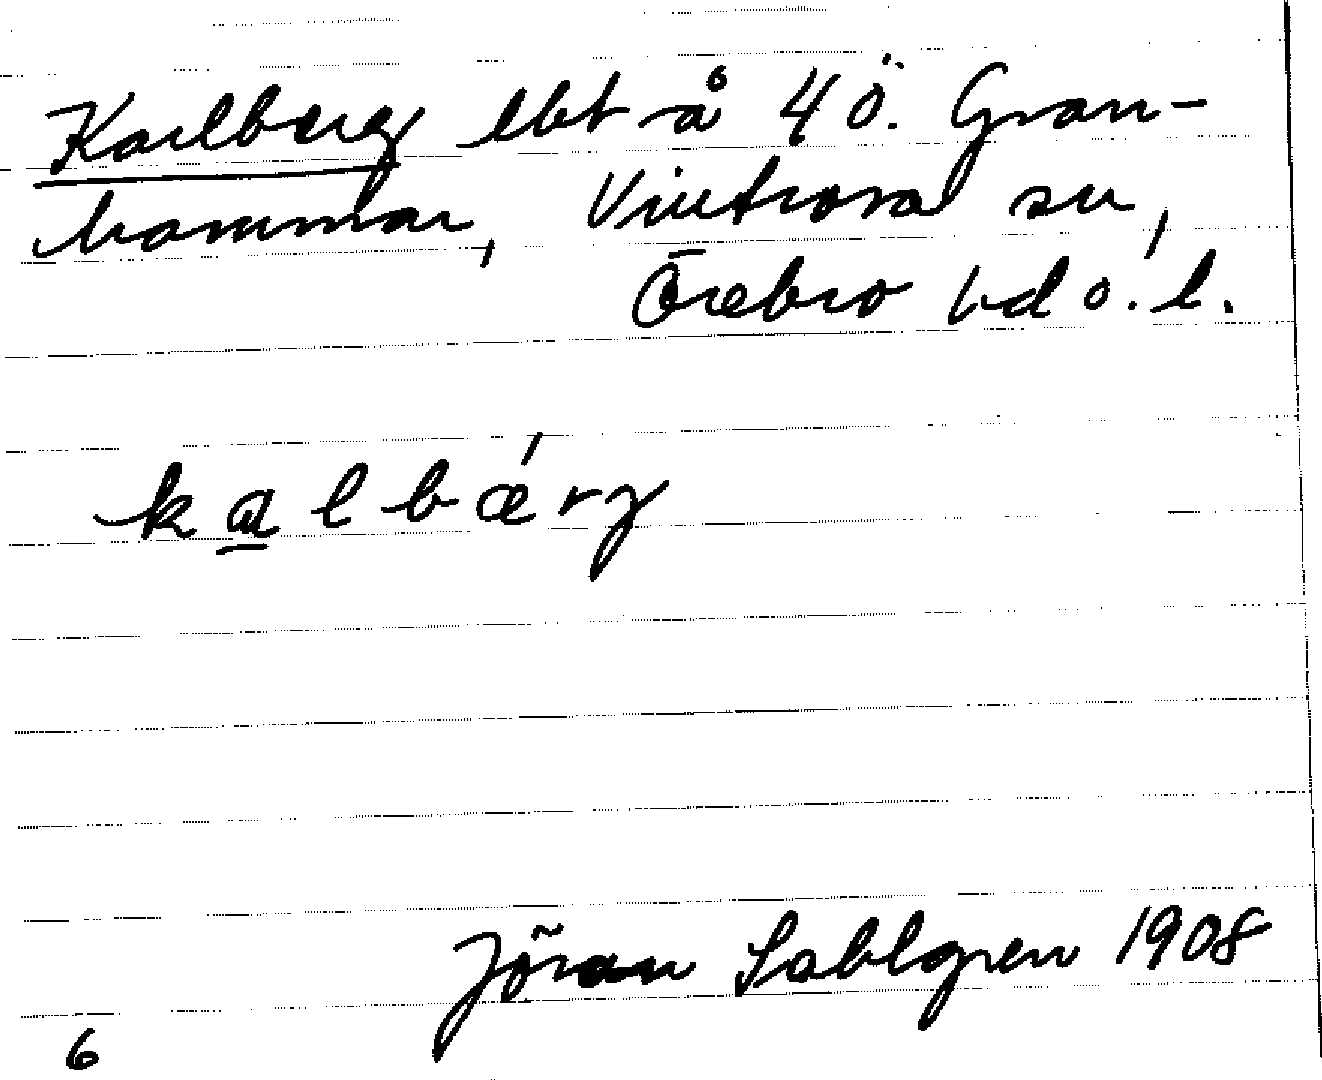 Karlberg lht å 4 Ö. Gran-
hammar, Vintrosa sn,
Örebro hd ö. l.
kalbǽrg
Jöran Sahlgren 1908
6